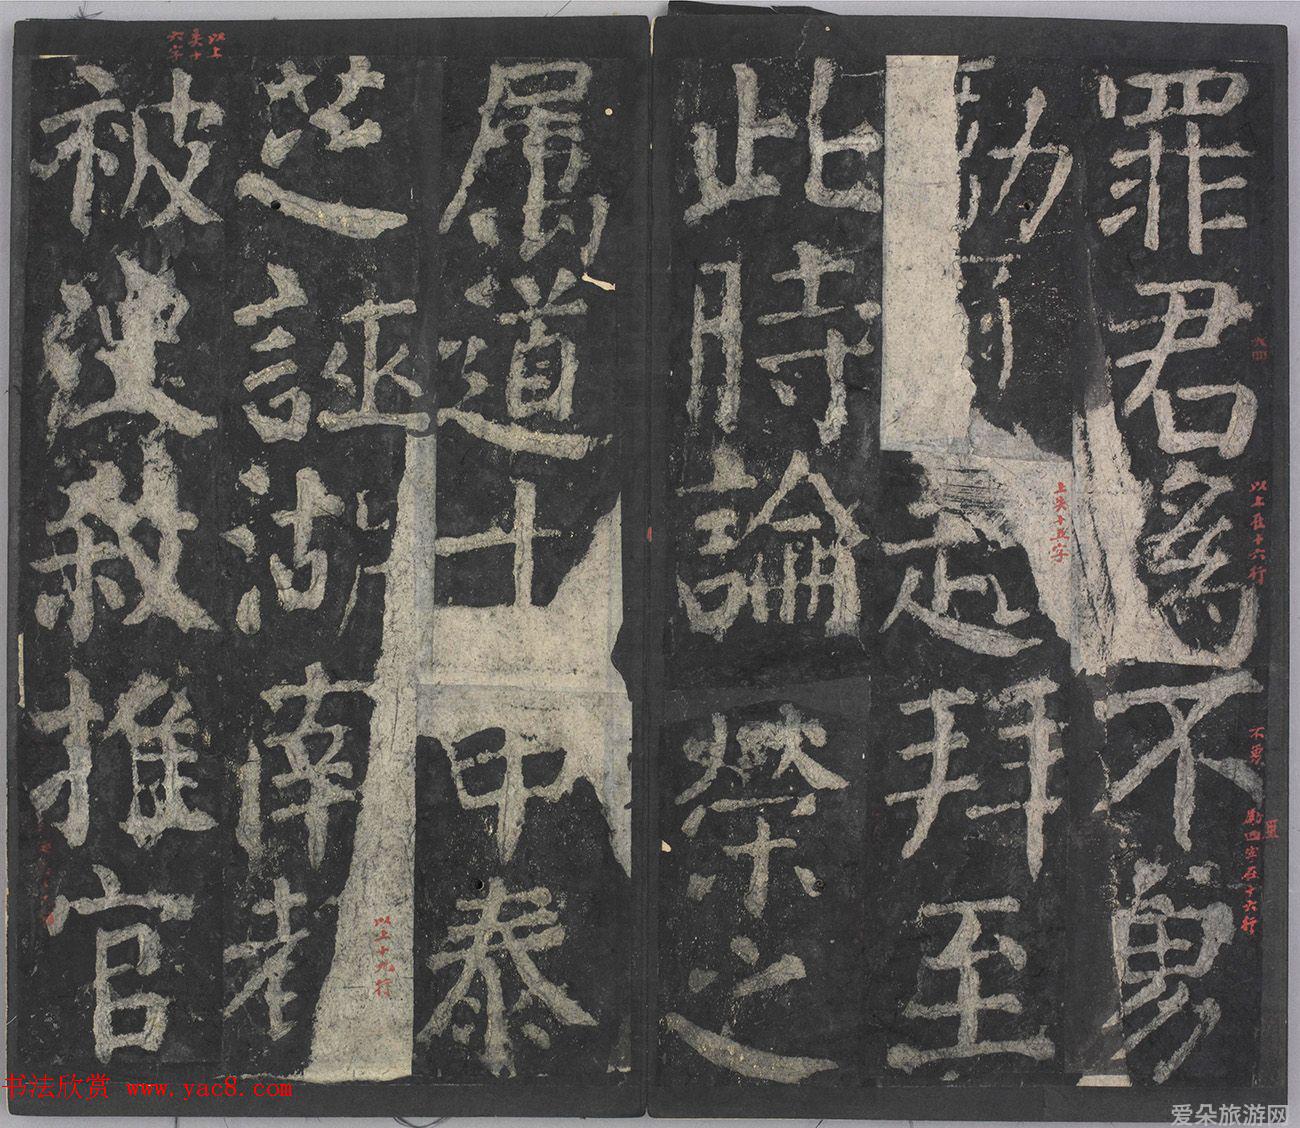 罪君不勇
起拜至
此時論榮之
属道士申泰
芝誣湖南
被決殺推官
以上失十六字
以上在十六行
上失十五字
四字在十六行
以上十九行
书法欣赏 www.yac8.com
爱朵旅游网